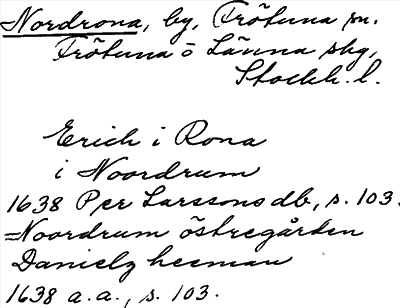 Nordrona, by, Frötuna sn.
Frötuna o Länna skg,
Stockh. l.
Erich i Rona
i Noordrum
1638 Per Larssons db, s. 103.
=Noordrum östregården
Danielz heeman
1638 a.a., s. 103.